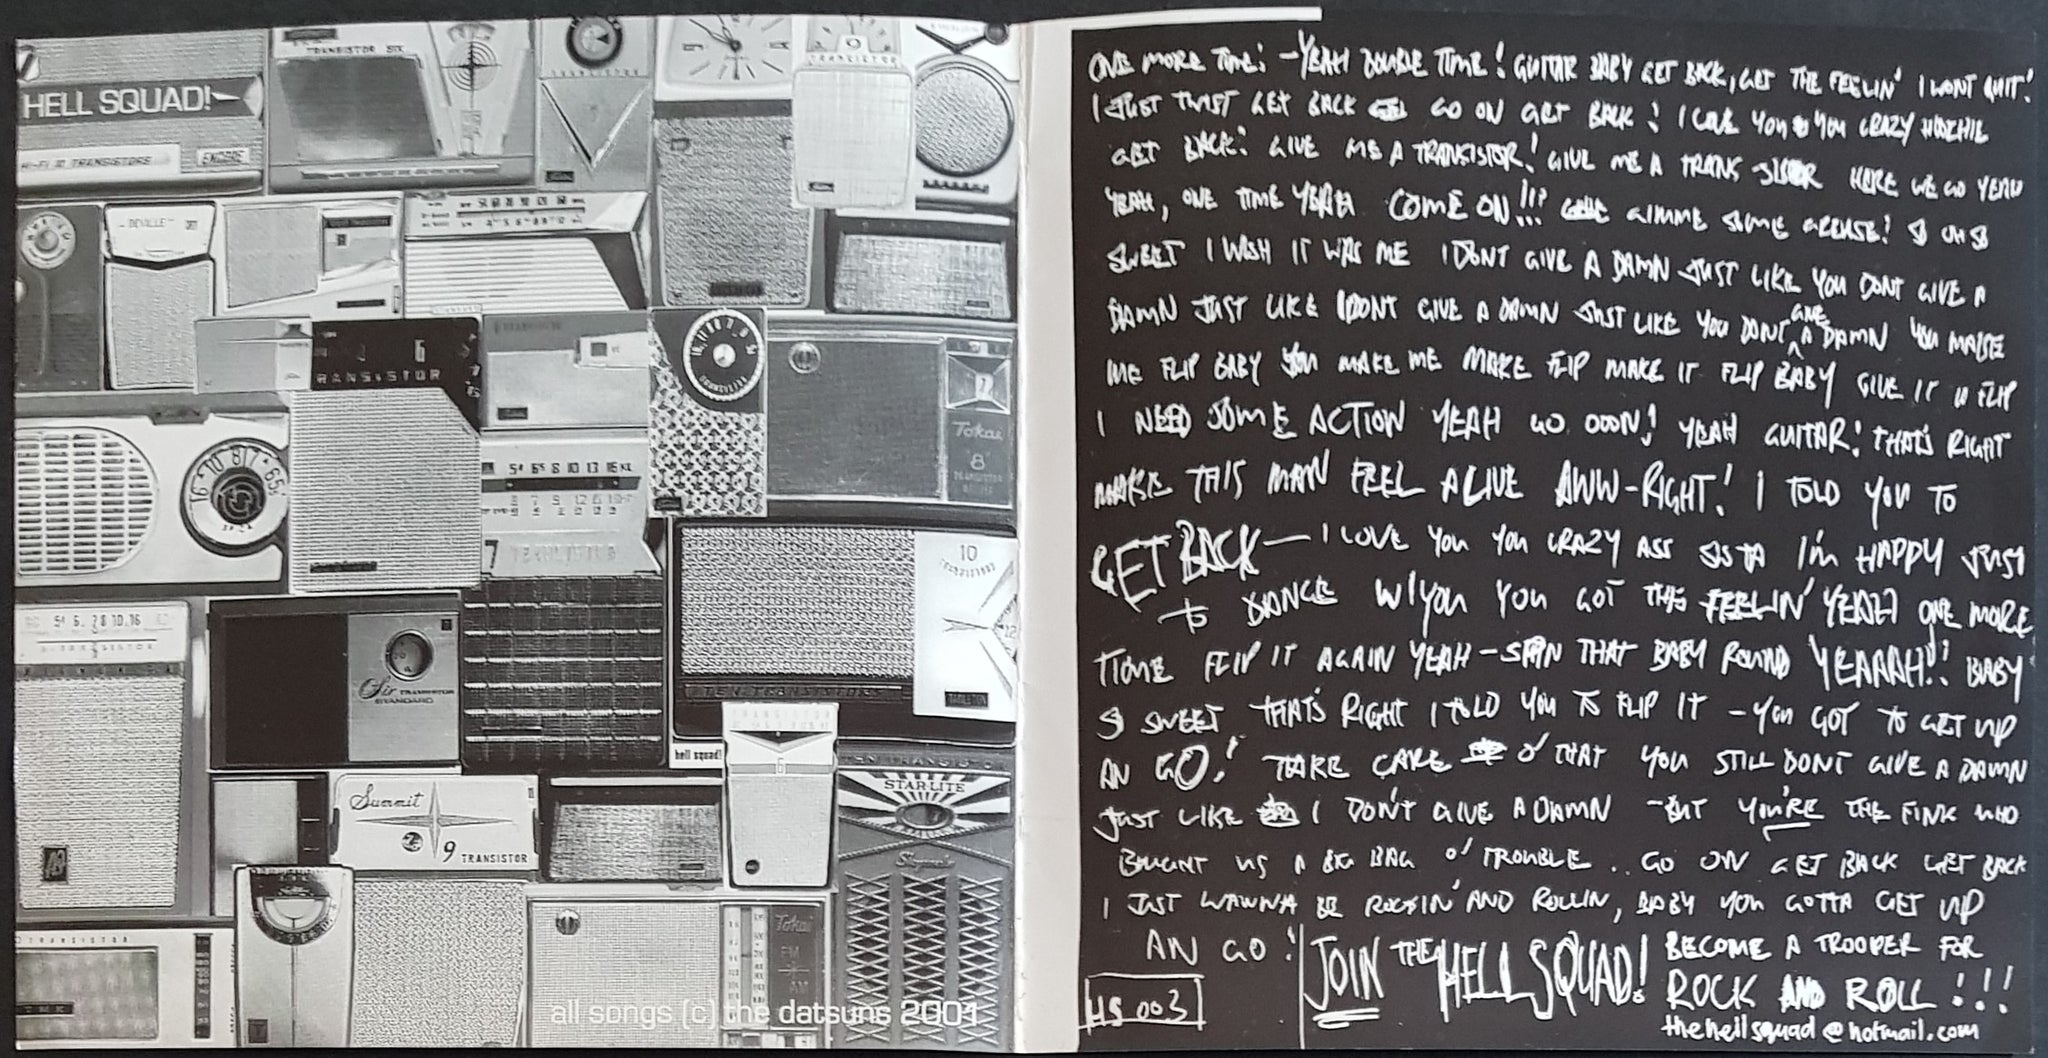 TRANSISTOR SIX
HELL SQUAD!
HI-FI 10 TRANSISTORS
ENCORE
TRANSISTOR
TRANSISTOR
DEVILLE
6
TRANSISTOR
Tokai
8
TRANSISTOR
7 TRANSISTOR
10
TRANSISTORS
TEN TRANSISTORS
Sir TRANSISTOR
STANDARD
hell squad!
TRANSISTOR
6
TEN TRANSISTO
STARLITE
Summit
9 TRANSISTOR
TRANSISTOR
Tokai
FM
AM
all songs (c) the datsuns 2001
ONE MORE TIME! -YEAH DOUBLE TIME! GUITAR BABY GET BACK, GET THE FEELIN' I WONT QUIT!
I JUST TWIST GET BACK GO ON GET BACK! I LOVE YOU YOU CRAZY
GET BACK! GIVE ME A TRANSISTOR! GIVE ME A TRANS SISTOR HERE WE GO YEAH
YEAH, ONE TIME YEAH COME ON!!! GIMME SOME GREASE! S OH SO
SWEET I WISH IT WAS ME I DONT GIVE A DAMN JUST LIKE YOU DONT GIVE A
DAMN JUST LIKE I DONT GIVE A DAMN JUST LIKE YOU DONT GIVE A DAMN YOU MAKE
ME FLIP BABY YOU MAKE ME MAKE FLIP MAKE IT FLIP BABY GIVE IT A FLIP
I NEED SOME ACTION YEAH GO OOON! YEAH GUITAR! THAT'S RIGHT
MAKE THIS MAN FEEL ALIVE AWW-RIGHT! I TOLD YOU TO
GET BACK — I LOVE YOU YOU CRAZY ASS SISTA I'M HAPPY JUST
TO DANCE W/YOU YOU GOT THIS FEELIN' YEAH ONE MORE
TIME FLIP IT AGAIN YEAH - SPIN THAT BABY ROUND YEAAAH!! BABY
SO SWEET THAT'S RIGHT I TOLD YOU TO FLIP IT - YOU GOT TO GET UP
AN GO! TAKE CARE O' THAT YOU STILL DONT GIVE A DAMN
JUST LIKE I DON'T GIVE A DAMN - BUT YOU'RE THE FINK WHO
BOUGHT US A BIG BAG O' TROUBLE .. GO ON GET BACK GET BACK
I JUST WANNA BE ROCKIN' AND ROLLIN, BABY YOU GOTTA GET UP
AN GO!
HS 003
JOIN THE HELL SQUAD!
BECOME A TROOPER FOR
ROCK AND ROLL!!!
thehellsquad@hotmail.com